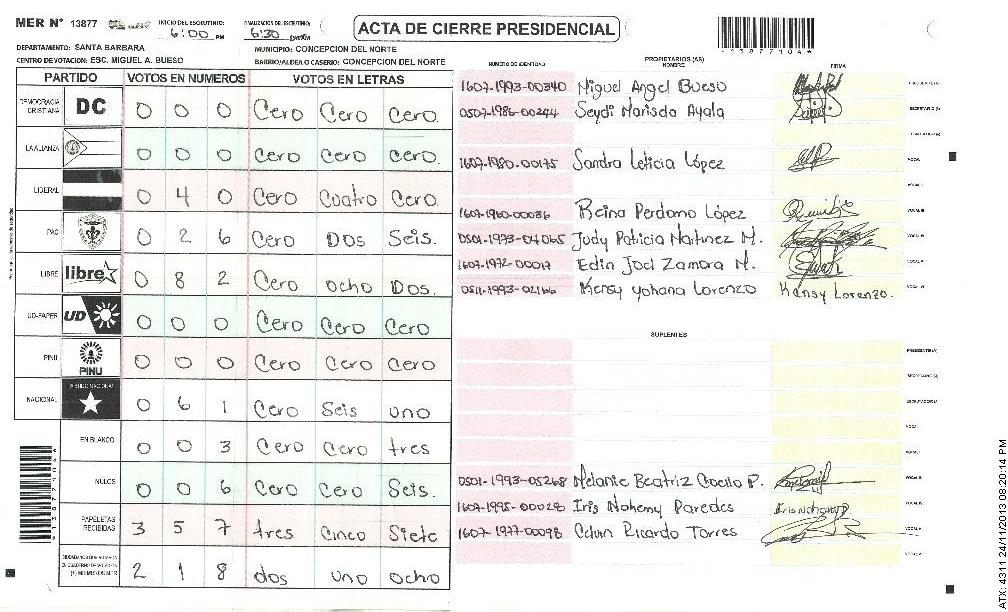 MER N° 13877 INICIO DEL ESCRUTINIO: 6:00 PM FINALIZACION DEL ESCRUTINIO: 6:30
ACTA DE CIERRE PRESIDENCIAL
13877104
DEPARTAMENTO: SANTA BARBARA MUNICIPIO: CONCEPCION DEL NORTE
CENTRO DE VOTACION: ESC. MIGUEL A. BUESO BARRIO/ALDEA O CASERIO: CONCEPCION DEL NORTE
PARTIDO VOTOS EN NUMEROS VOTOS EN LETRAS
DEMOCRACIA CRISTIANA DC 0 0 0 Cero Cero Cero.
LA ALIANZA 0 0 0 Cero Cero Cero.
LIBERAL 0 4 0 Cero Cuatro Cero.
PAC 0 2 6 Cero Dos Seis.
LIBRE libre 0 8 2 Cero ocho Dos.
UD-FAPER UD 0 0 0 Cero Cero Cero
PINU PINU 0 0 0 Cero Cero Cero
NACIONAL PARTIDO NACIONAL 0 6 1 Cero Seis uno
EN BLANCO 0 0 3 Cero Cero tres
NULOS 0 0 6 Cero Cero Seis.
PAPELETAS RECIBIDAS 3 5 7 tres Cinco Siete
2 1 8 dos uno ocho
PROPIETARIOS (AS)
NUMERO DE IDENTIDAD NOMBRE FIRMA
1607-1993-00340 Miguel Angel Bueso
0507-1986-00244 Seydi Marisda Ayala
1607-1980-00175 Sandra Leticia López
1607-1960-00086 Reina Perdomo López
0501-1993-04065 Judy Patricia Martinez M.
1607-1972-00017 Edin Joel Zamora M.
0511-1993-02166 Kensy Yohana Lorenzo Kensy Lorenzo.
SUPLENTES
0501-1993-05268 Melanie Beatriz Coello P.
1607-1995-00028 Iris Nohemy Paredes Iris Nohemy P.
1607-1977-00098 Edvin Ricardo Torres
ATX: 4311 24/11/2013 08:20:14 PM